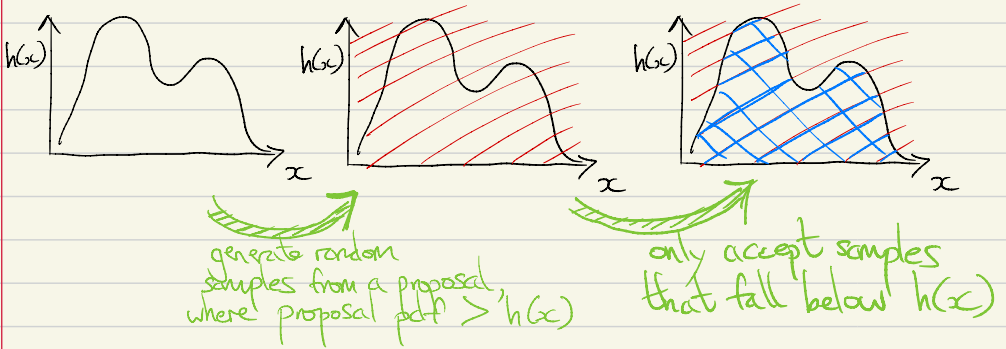 h(x)
x
h(x)
x
h(x)
x
generate random
samples from a proposal,
where proposal pdf > h(x)
only accept samples
that fall below h(x)